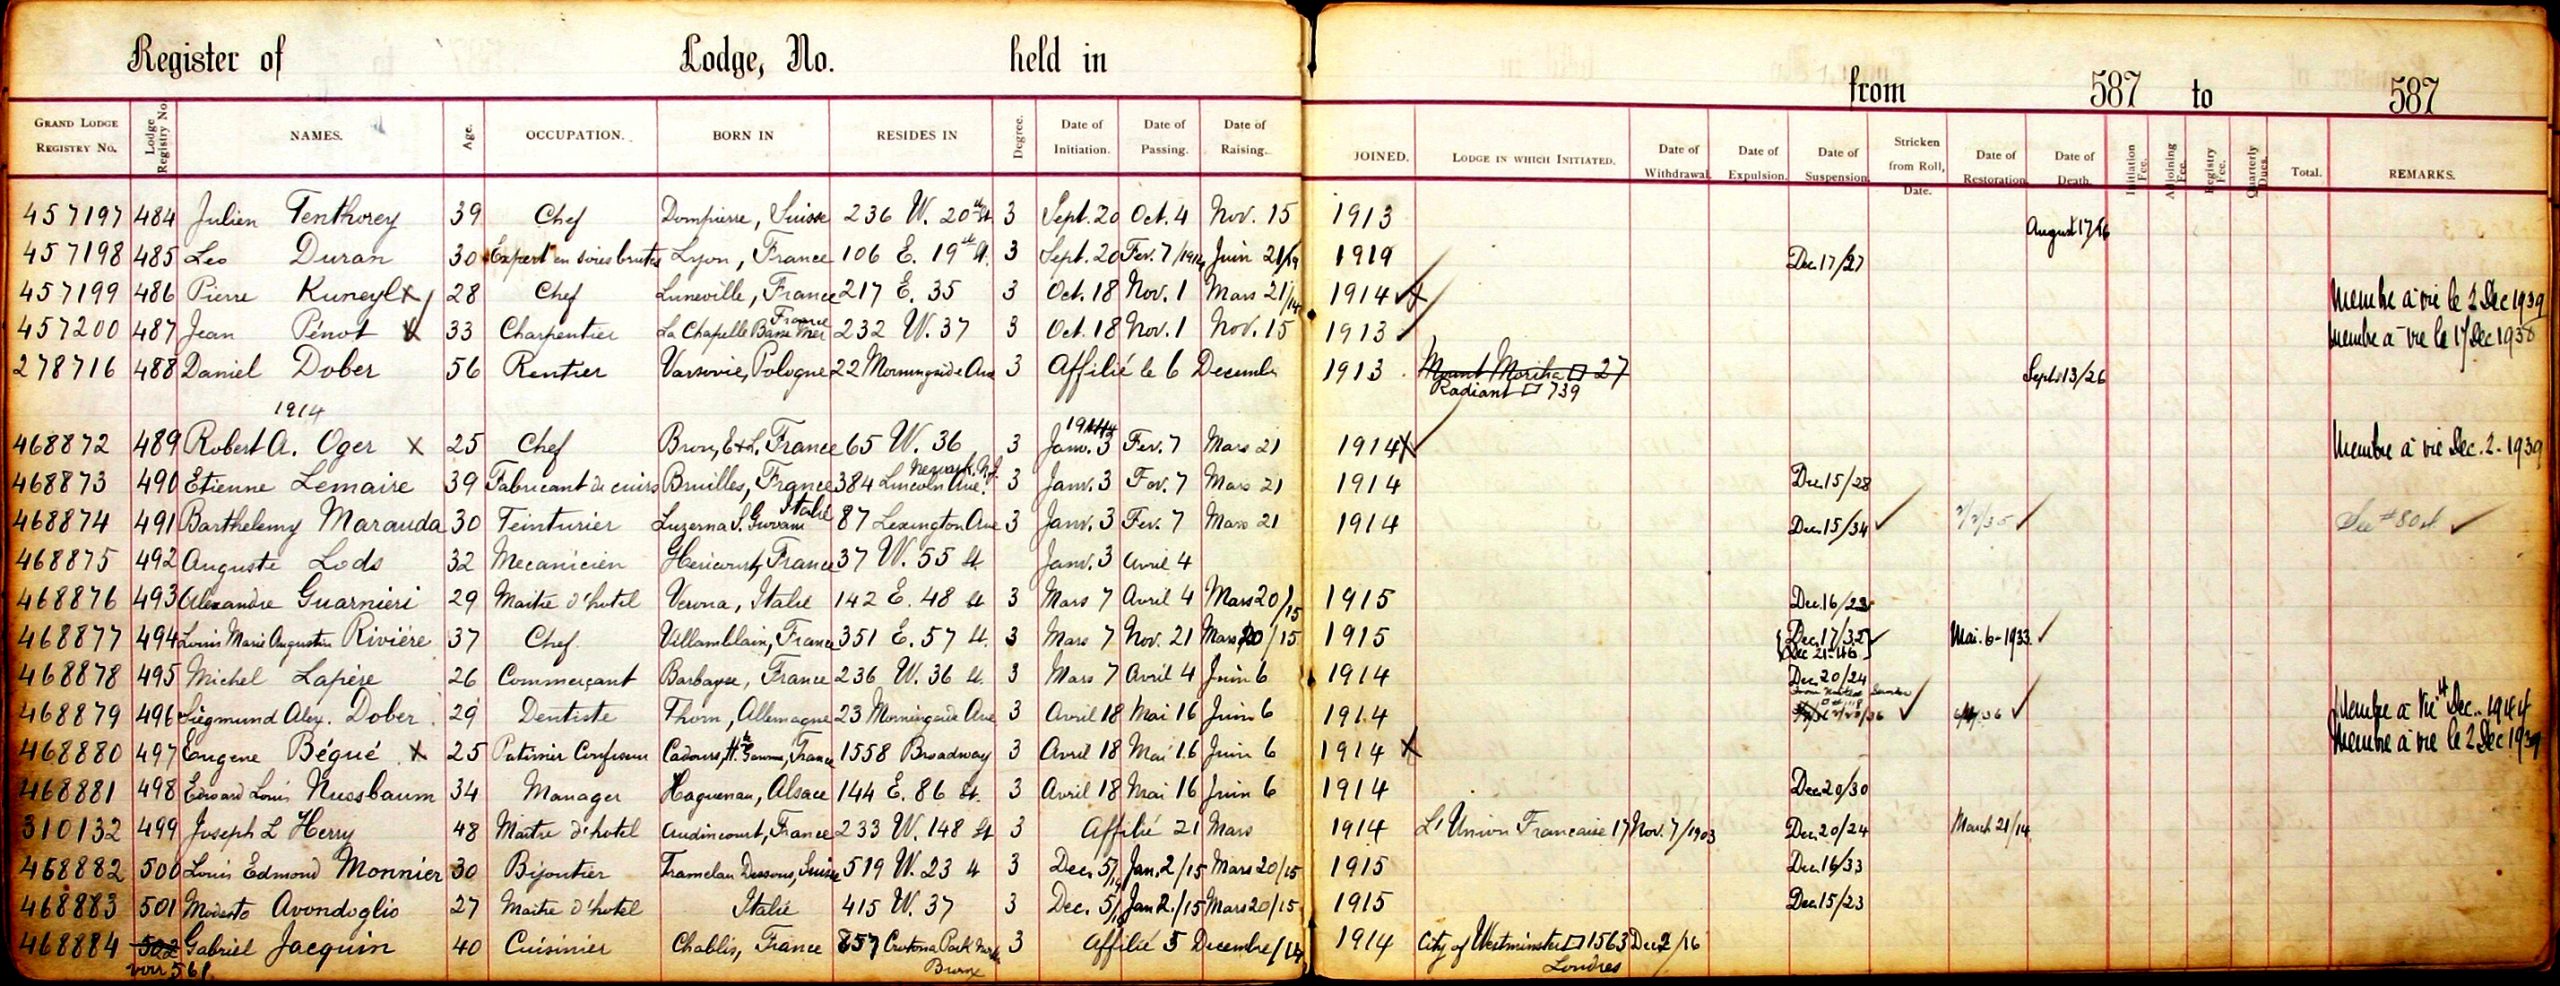 Register of Lodge, No. held in from 587 to 587
GRAND LODGE REGISTRY NO. Lodge Registry No. NAMES. Age. OCCUPATION. BORN IN RESIDES IN Degree. Date of Initiation. Date of Passing. Date of Raising. JOINED. LODGE IN WHICH INITIATED. Date of Withdrawal. Date of Expulsion. Date of Suspension. Stricken from Roll, Date. Date of Restoration. Date of Death. Initiation Fee. Adjoining Fee. Registry Fee. Quarterly Dues. Total. REMARKS.
457197 484 Julien Tenthorey 39 Chef Dompierre, Suisse 236 W. 20th St 3 Sept. 20 Oct. 4 Nov. 15 1913 August 17/16
457198 485 Leo Duran 30 Expert en soies brutes Lyon, France 106 E. 19th St. 3 Sept. 20 Fev. 7/1914 Juin 21/19 1919 Dec. 17/27
457199 486 Pierre Kuneyl x 28 Chef Luneville, France 217 E. 35 3 Oct. 18 Nov. 1 Mars 21/14 1914 Membre à vie le 2 Dec 1939
457200 487 Jean Pénot x 33 Charpentier La Chapelle Basse Mer France 232 W. 37 3 Oct. 18 Nov. 1 Nov. 15 1913 Membre à vie le 17 Dec 1938
278716 488 Daniel Dober 56 Rentier Varsovie, Pologne 22 Morningside Ave 3 Affilié le 6 Decembre 1913 Mount Moriha 27 Sept. 13/26
Radiant 739
1914
468872 489 Robert A. Oger x 25 Chef Brou, E & L. France 65 W. 36 3 Janv. 3 Fev. 7 Mars 21 1914 x Membre à vie Dec. 2 - 1939
468873 490 Etienne Lemaire 39 Fabricant de cuirs Bruilles, France 384 Lincoln Ave. Newark. N.J. 3 Janv. 3 Fev. 7 Mars 21 1914 Dec. 15/28
468874 491 Barthelemy Marauda 30 Teinturier Luzerna S. Giovani Italie 87 Lexington Ave 3 Janv. 3 Fev. 7 Mars 21 1914 Dec. 15/34 2/2/35 See #80
468875 492 Auguste Lods 32 Mecanicien Hericourt, France 37 W. 55 St. Janv. 3 Avril 4
468876 493 Alexandre Guarnieri 29 Maitre d'hotel Verona, Italie 142 E. 48 St 3 Mars 7 Avril 4 Mars 20/15 1915 Dec. 16/23
468877 494 Louis Marie Augustin Rivière 37 Chef Villamblain, France 351 E. 57 St. 3 Mars 7 Nov. 21 Mars 20/15 1915 Dec. 17/32 Mai. 6-1933
Dec 21-46
468878 495 Michel Lapère 26 Commerçant Barbayse, France 236 W. 36 St. 3 Mars 7 Avril 4 Juin 6 1914 Dec. 20/24
468879 496 Siegmund Alex. Dober 29 Dentiste Thorn, Allemagne 23 Morningside Ave 3 Avril 18 Mai 16 Juin 6 1914 Membre à Vie Dec. 1944
468880 497 Eugene Bégué x 25 Patissier Confiseur Cadours, Hte. Garonne, France 1558 Broadway 3 Avril 18 Mai 16 Juin 6 1914 x Membre à vie le 2 Dec 1939
468881 498 Edouard Louis Nussbaum 34 Manager Haguenau, Alsace 144 E. 86 St. 3 Avril 18 Mai 16 Juin 6 1914 Dec. 20/30
310132 499 Joseph L Herry 48 Maitre d'hotel Audincourt, France 233 W. 148 St 3 Affilié 21 Mars 1914 L'Union Francaise 17 Nov. 7/1903 Dec. 20/24 March 21/14
468882 500 Louis Edmond Monnier 30 Bijoutier Tramelan Dessous, Suisse 519 W. 23 St 3 Dec. 5/14 Jan. 2/15 Mars 20/15 1915 Dec. 16/33
468883 501 Modesto Avondoglio 27 Maitre d'hotel Italie 415 W. 37 3 Dec. 5/14 Jan 2/15 Mars 20/15 1915 Dec. 15/23
468884 502 Gabriel Jacquin 40 Cuisinier Chablis, France 857 Crotona Park North 3 Affilié 5 Decembre/14 1914 City of Westminster 1563 Dec 2/16
voir 561. Bronx Londres